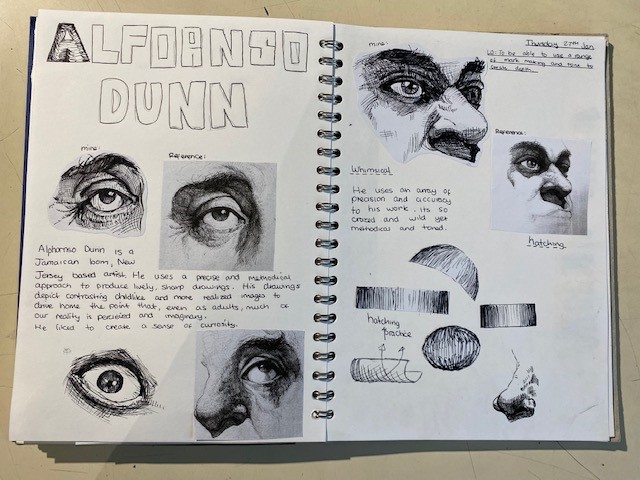 ALFOANSO
DUNN
mine:
Reference:
Alphonso Dunn is a
Jamaican born, New
Jersey based artist. He uses a precise and methodical
approach to produce lively, sharp drawings. His drawings
depict contrasting childlike and more realized images to
drive home the point that, even as adults, much of
our reality is perceived and imaginary.
He liked to create a sense of curiosity.
Thursday 27TH Jan
LO: To be able to use a range
of mark making and tone to
create depth.
mine:
Reference:
Whimsical
He uses an array of
precision and accuracy
to his work. its so
crazed and wild yet
methodical and toned.
hatching
hatching
practice